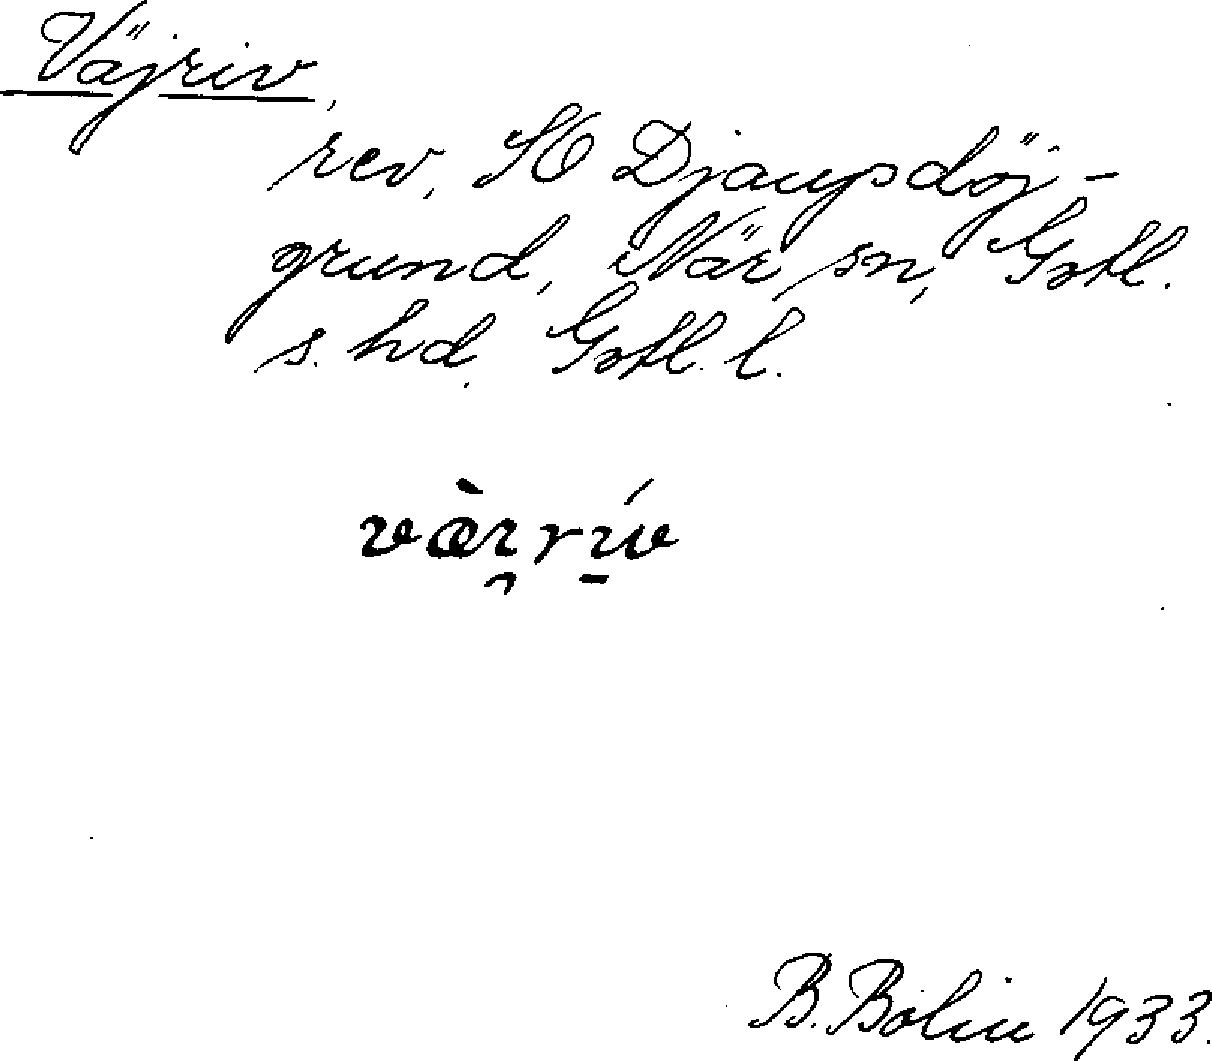 Väjriv,
rev, SO Djaupsdöj-
grund, När sn, Gotl.
s. hd. Gotl. l.
væ̀ɪ̯rɪ̱́v
B. Bolin 1933.